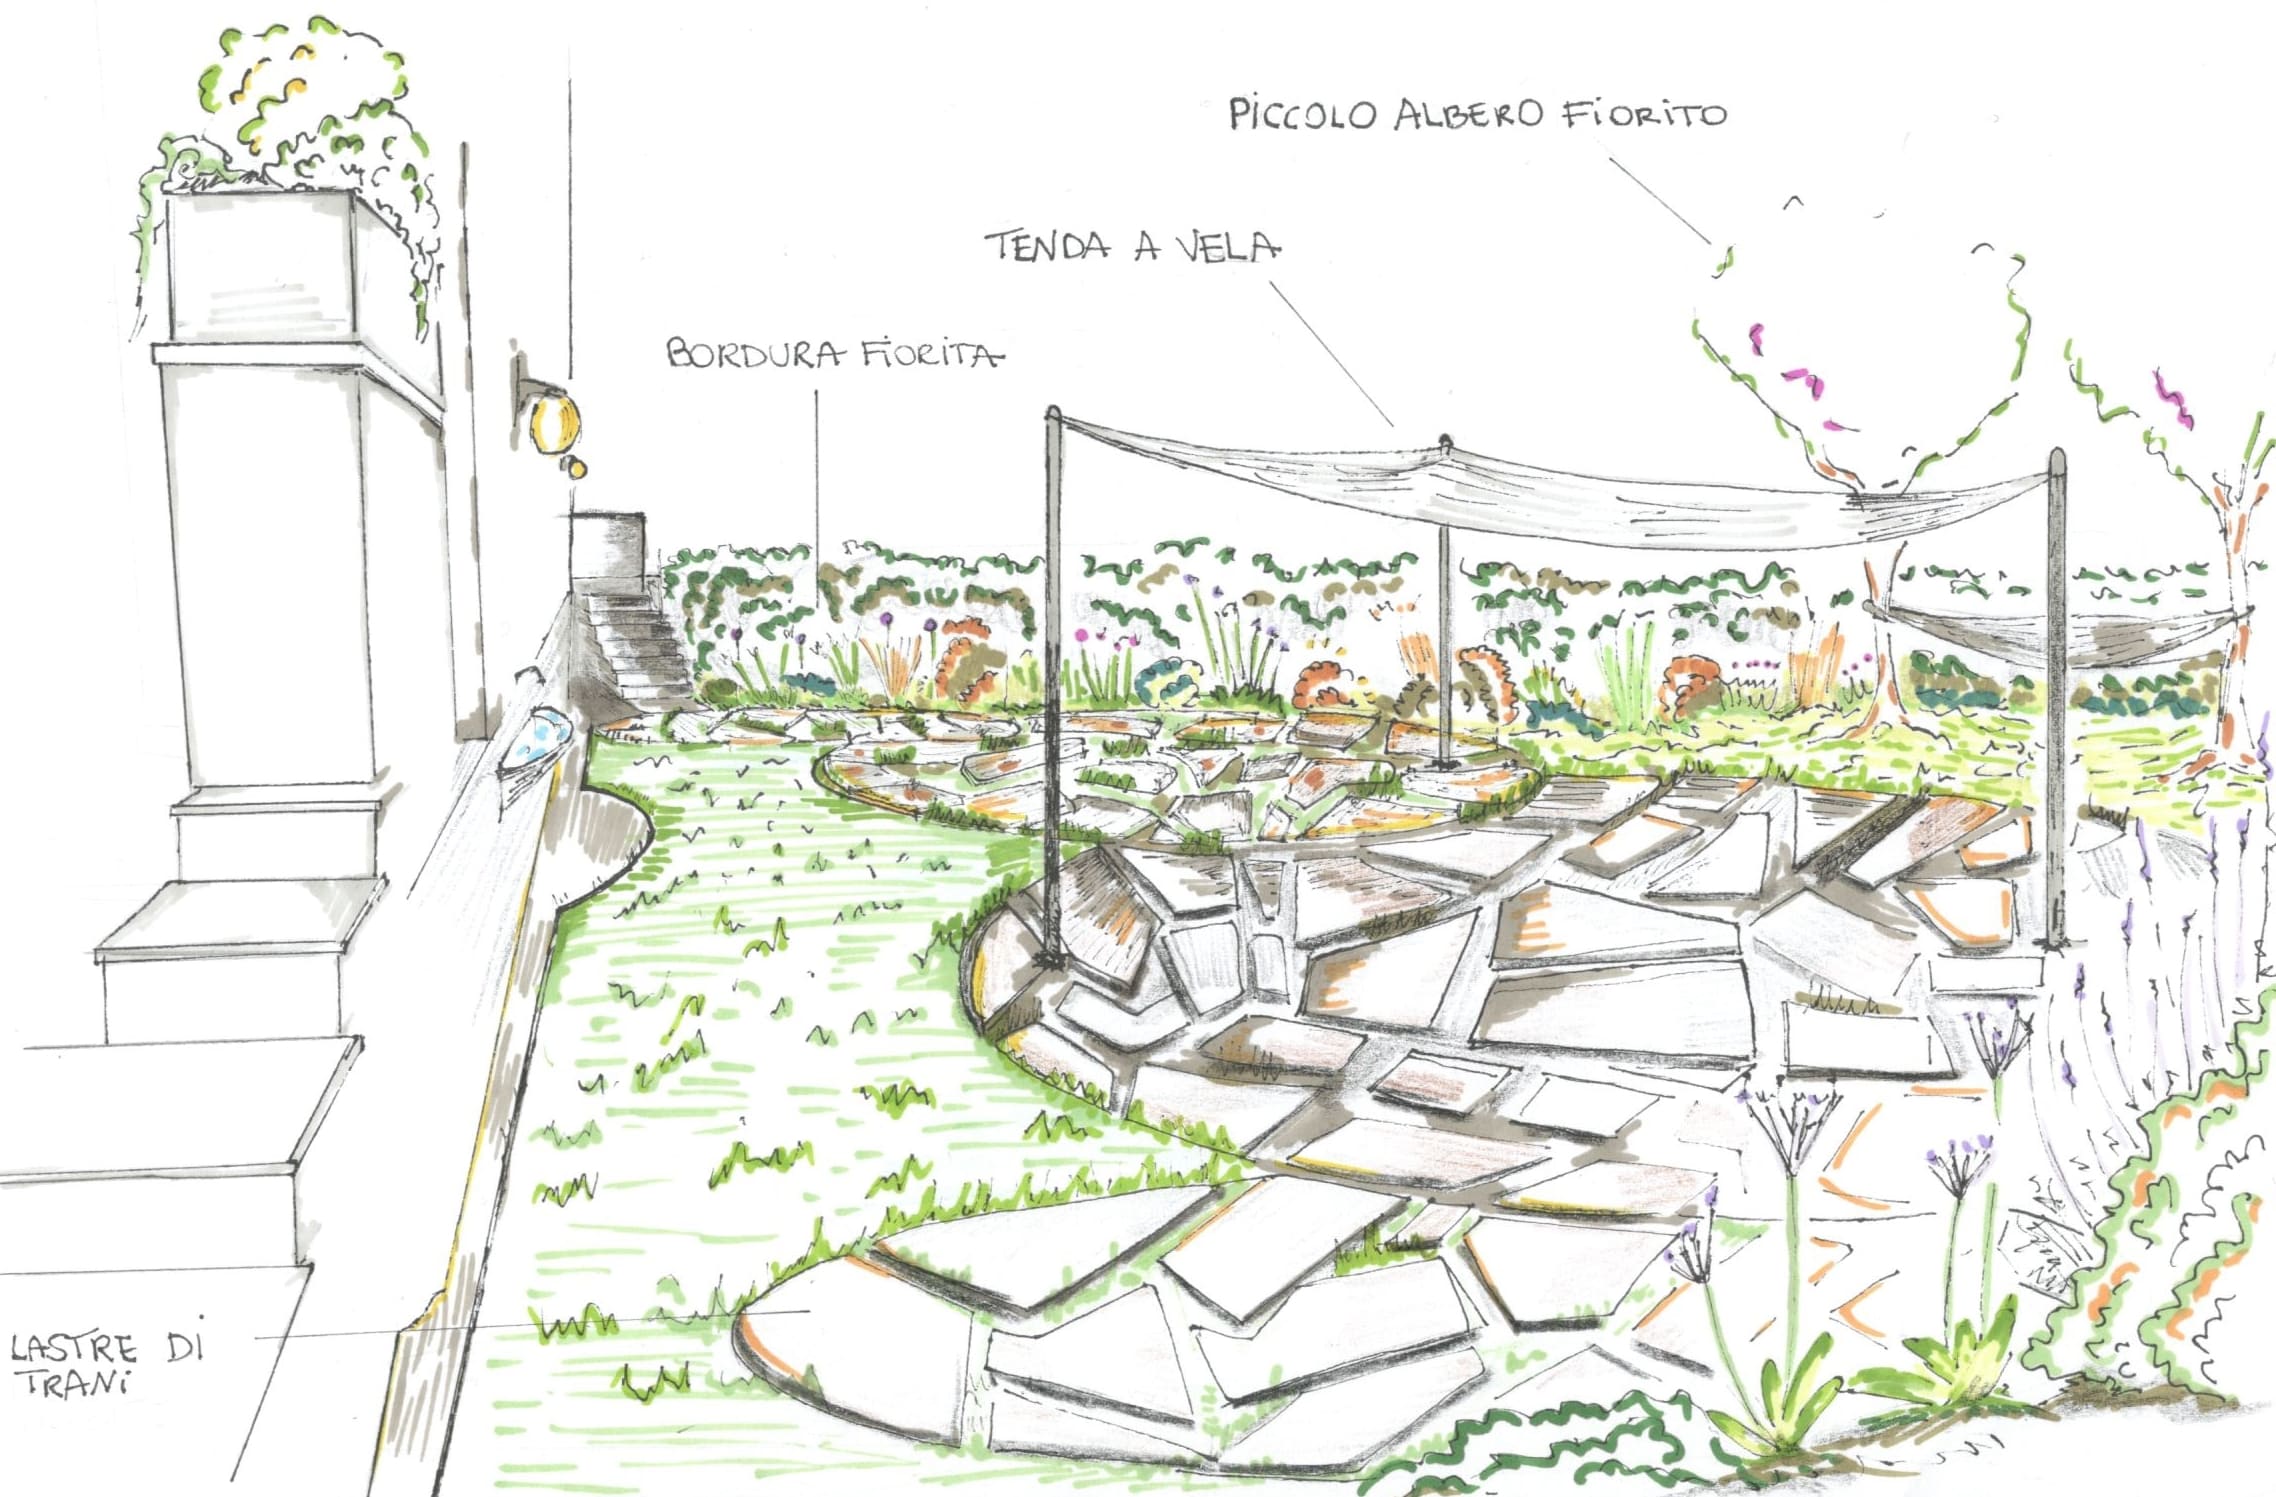 PICCOLO ALBERO FIORITO
TENDA A VELA
BORDURA FIORITA
LASTRE DI
TRANI